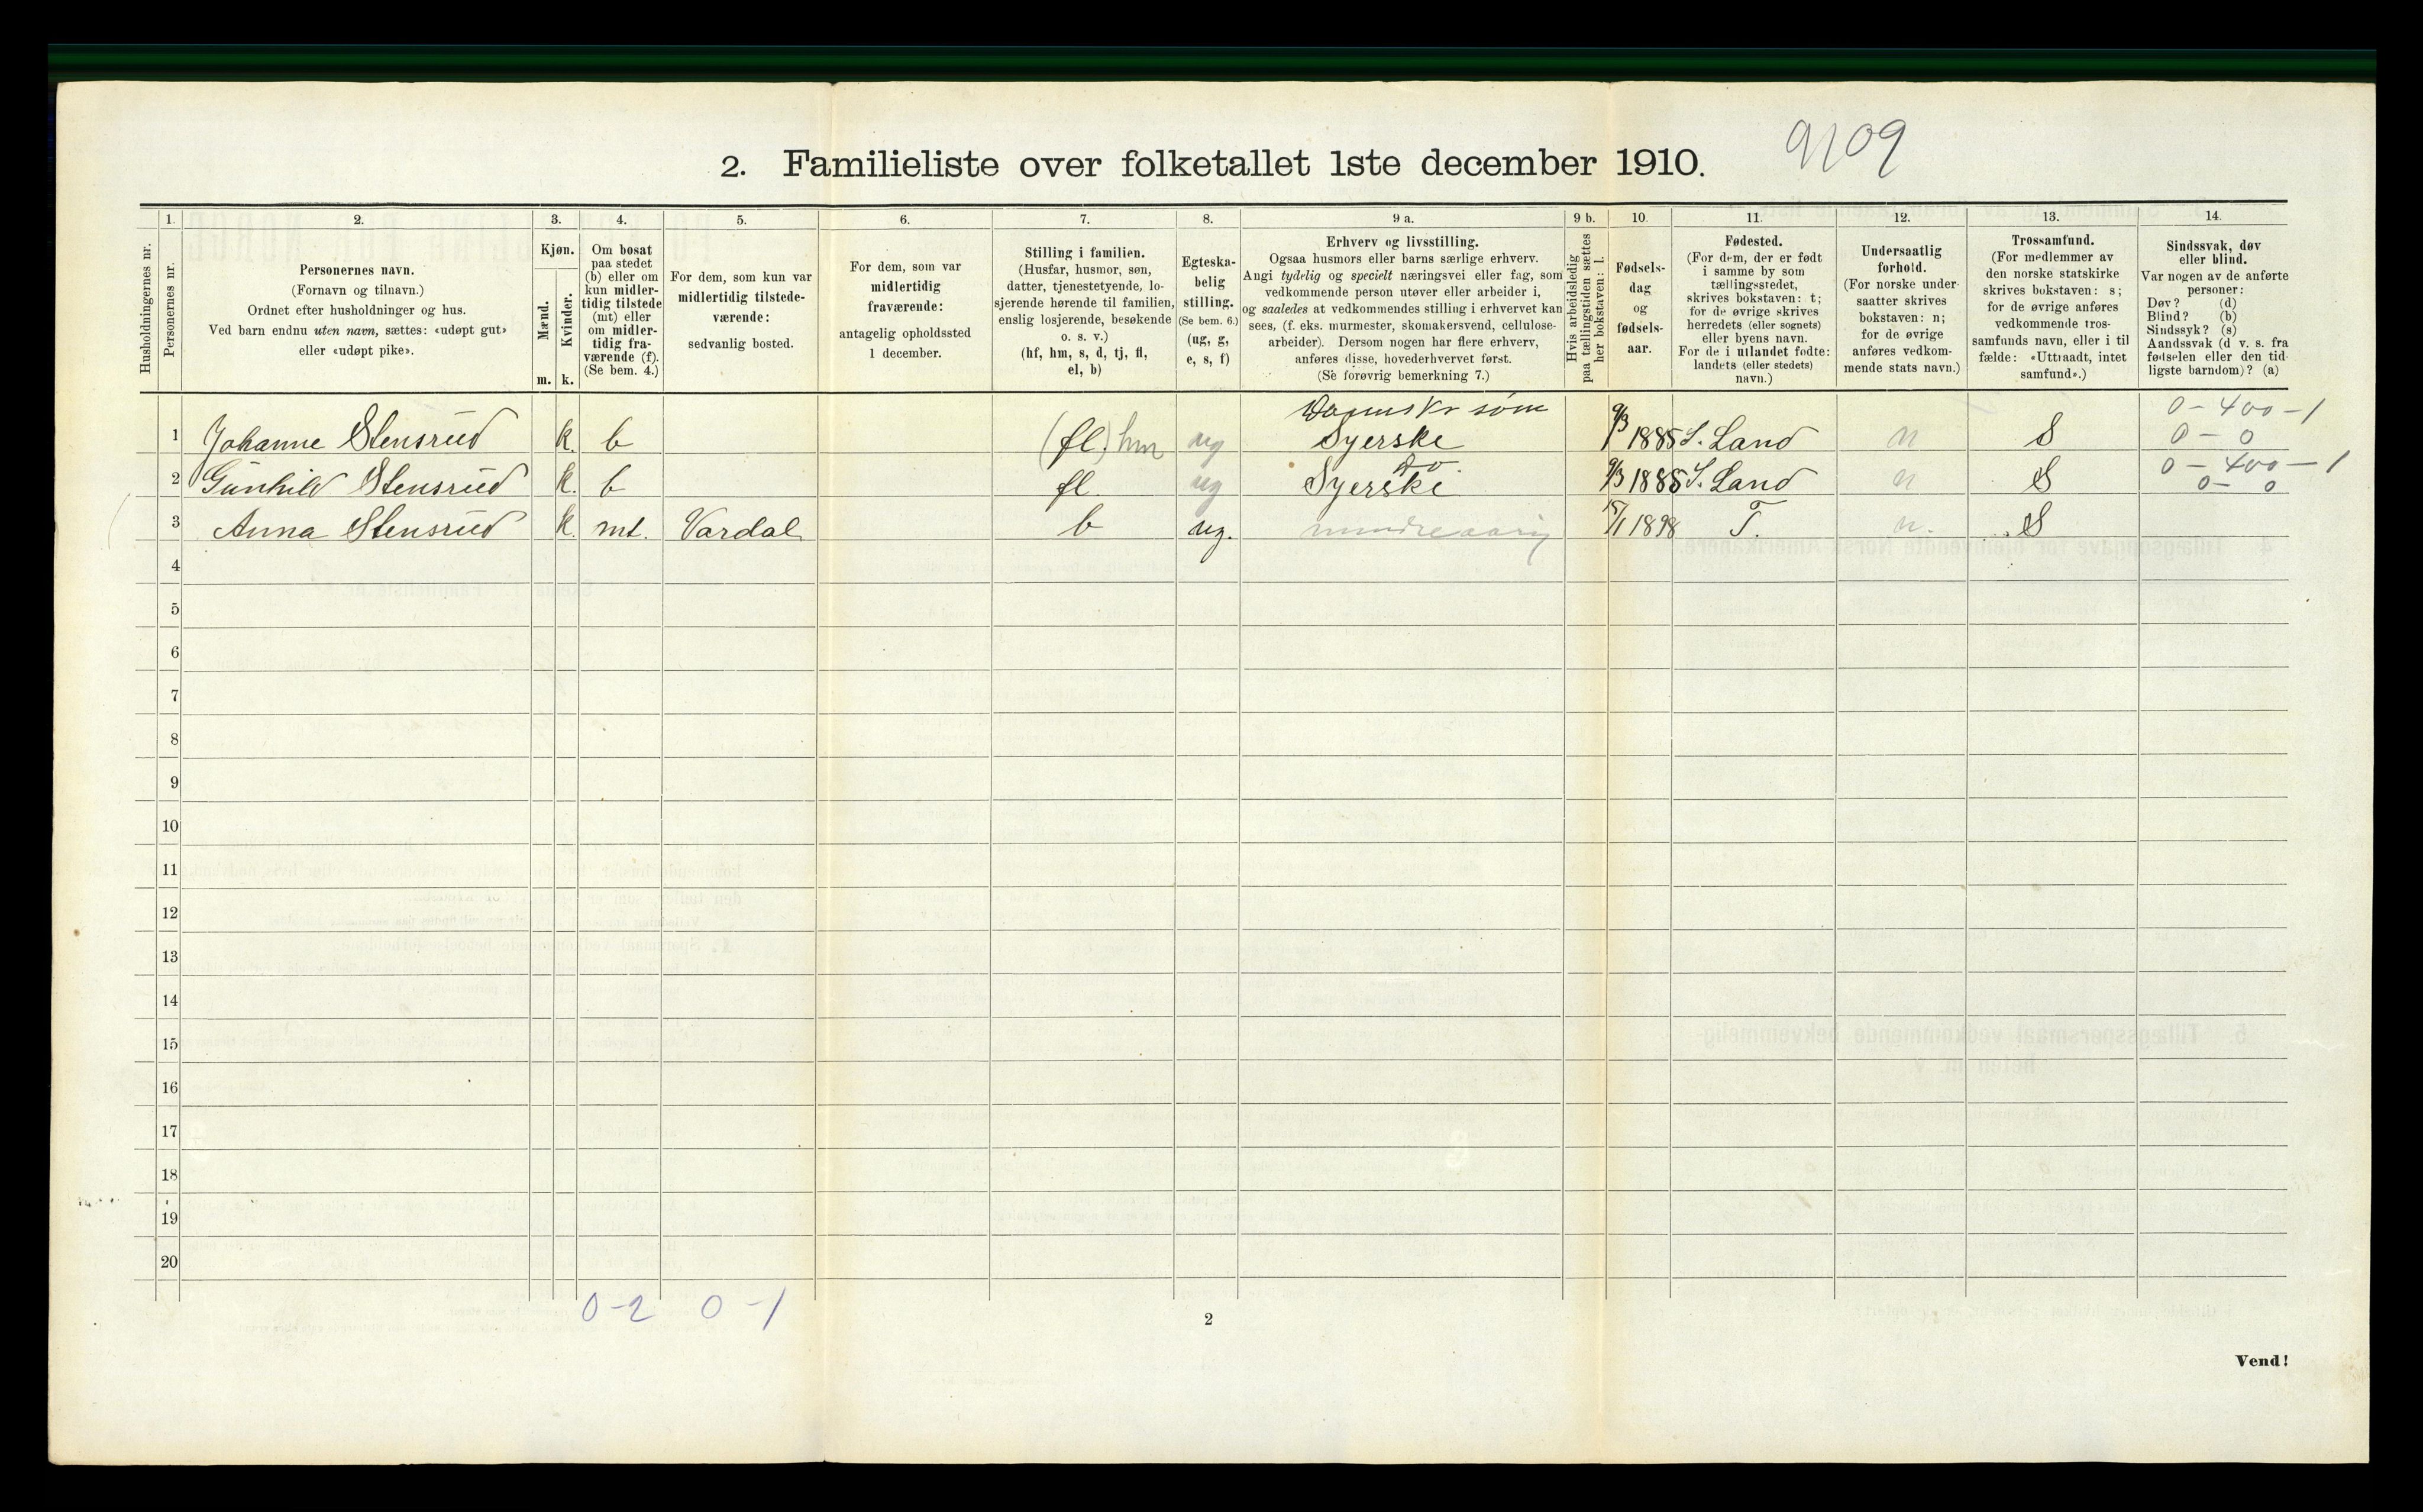 2. Familieliste over folketallet 1ste december 1910.
9109
1. 2. 3. 4. 5. 6. 7. 8. 9 a. 9 b. 10. 11. 12. 13. 14.
Husholdningernes nr.
Personernes nr.
Personernes navn.
(Fornavn og tilnavn.)
Ordnet efter husholdninger og hus.
Ved barn endnu uten navn, sættes: «udøpt gut»
eller «udøpt pike».
Kjøn.
Mænd.
Kvinder.
m. k.
Om bosat
paa stedet
(b) eller om
kun midler-
tidig tilstede
(mt) eller
om midler-
tidig fra-
værende (f).
(Se bem. 4.)
For dem, som kun var
midlertidig tilstede-
værende:
sedvanlig bosted.
For dem, som var
midlertidig
fraværende:
antagelig opholdssted
1 december.
Stilling i familien.
(Husfar, husmor, søn,
datter, tjenestetyende, lo-
sjerende hørende til familien,
enslig losjerende, besøkende
o. s. v.)
(hf, hm, s, d, tj, fl,
el, b)
Egteska-
belig
stilling.
(Se bem. 6.)
(ug, g,
e, s, f)
Erhverv og livsstilling.
Ogsaa husmors eller barns særlige erhverv.
Angi tydelig og specielt næringsvei eller fag, som
vedkommende person utøver eller arbeider i,
og saaledes at vedkommendes stilling i erhvervet kan
sees, (f. eks. murmester, skomakersvend, cellulose-
arbeider). Dersom nogen har flere erhverv,
anføres disse, hovederhvervet først.
(Se forøvrig bemerkning 7.)
Hvis arbeidsledig
paa tællingstiden sættes
her bokstaven: l.
Fødsels-
dag
og
fødsels-
aar.
Fødested.
(For dem, der er født
i samme by som
tællingsstedet,
skrives bokstaven: t;
for de øvrige skrives
herredets (eller sognets)
eller byens navn.
For de i utlandet fødte:
landets (eller stedets)
navn.)
Undersaatlig
forhold.
(For norske under-
saatter skrives
bokstaven: n;
for de øvrige
anføres vedkom-
mende stats navn.)
Trossamfund.
(For medlemmer av
den norske statskirke
skrives bokstaven: s;
for de øvrige anføres
vedkommende tros-
samfunds navn, eller i til
fælde: «Uttraadt, intet
samfund».)
Sindssvak, døv
eller blind.
Var nogen av de anførte
personer:
Døv? (d)
Blind? (b)
Sindssyk? (s)
Aandssvak (d v. s. fra
fødselen eller den tid-
ligste barndom)? (a)
søm 0-400-1
1 Johanne Stensrud k. b (fl.) hm ug Syerske 9/3 1885 S. Land n S 0-0
do. 0-400-1
2 Gunhild Stensrud k. b fl. ug Syerske 9/3 1885 S. Land n S 0-0
3 Anna Stensrud k. mt. Vardal b ug. mindreaarig 15/1 1898 T. n. S
4
5
6
7
8
9
10
11
12
13
14
15
16
17
18
19
20
0-2 0-1
2
Vend!